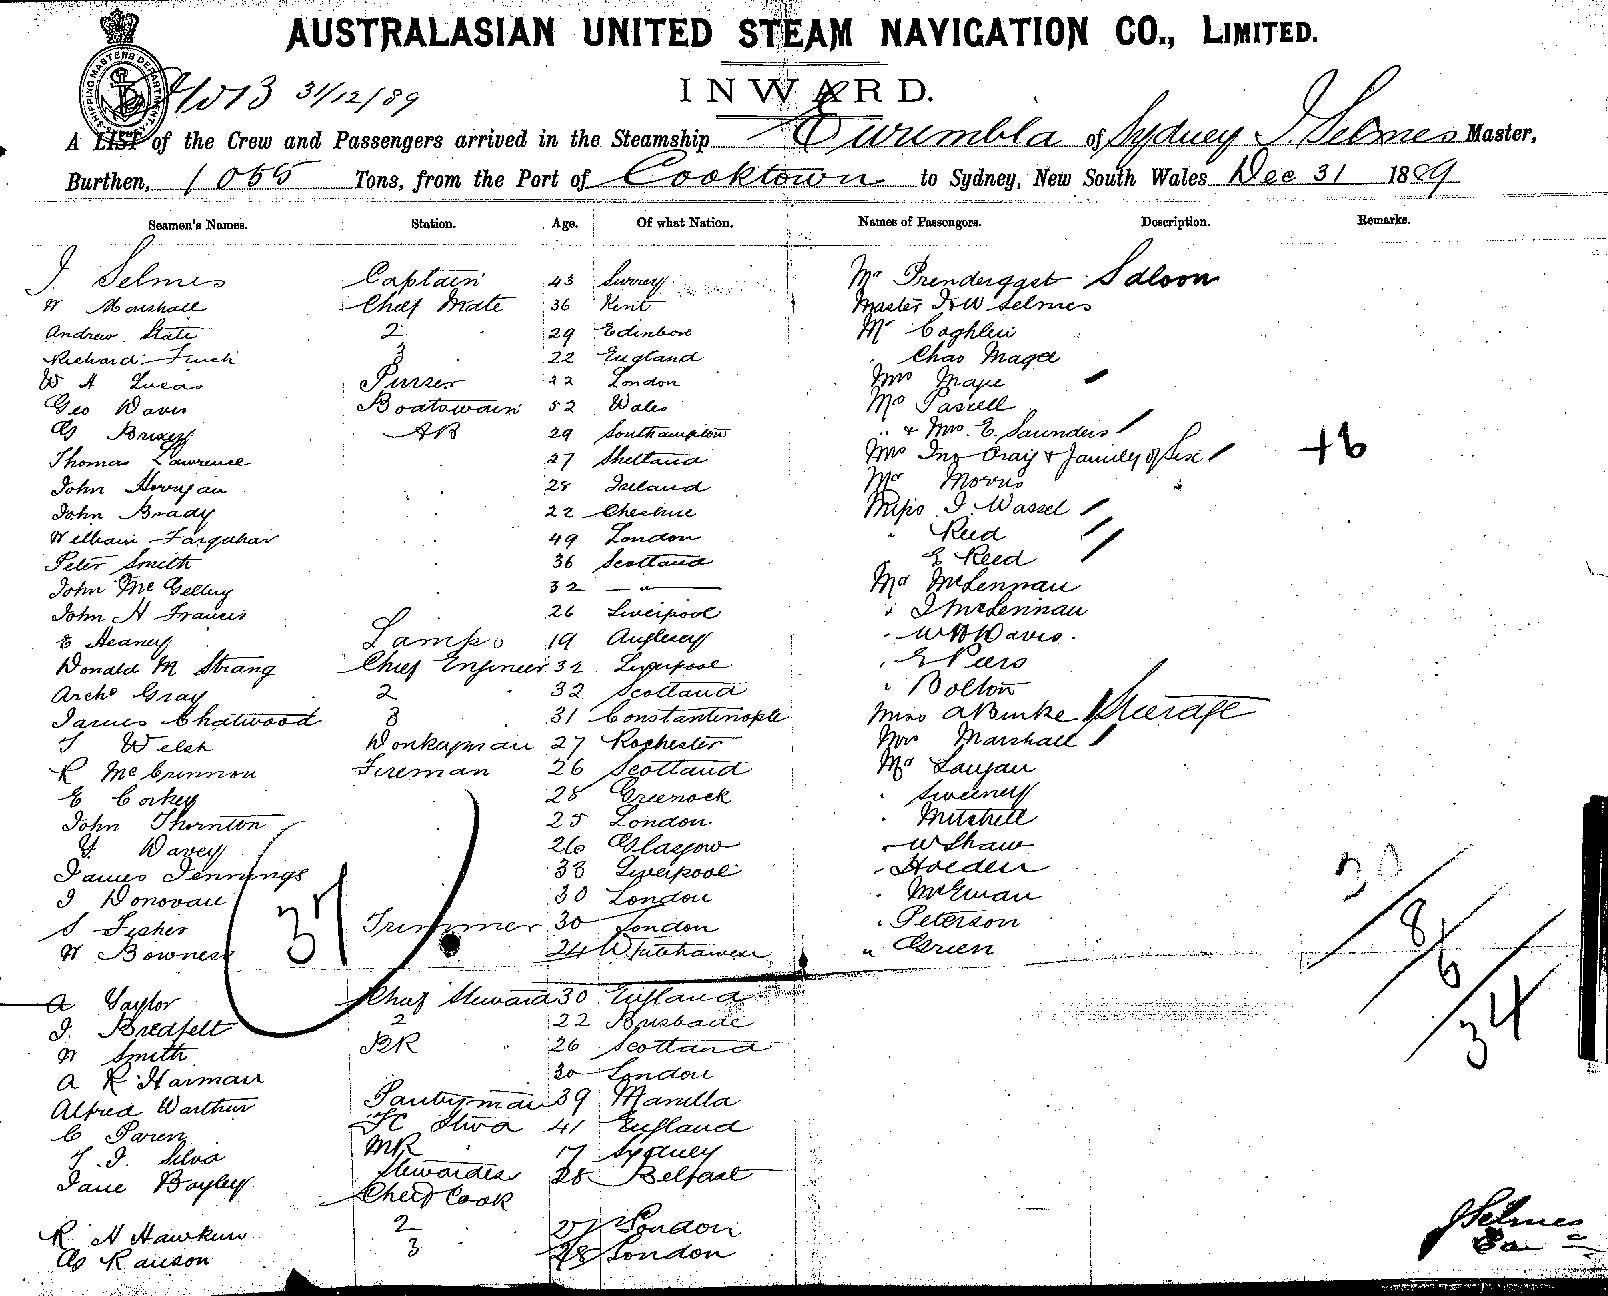 AUSTRALASIAN UNITED STEAM NAVIGATION CO., LIMITED.
SHIPPING MASTERS DEPARTMENT
31/12/89
INWARD.
A LIST of the Crew and Passengers arrived in the Steamship Eurimbla of Sydney J. Selmes Master,
Burthen, 1055 Tons, from the Port of Cooktown to Sydney, New South Wales Dec 31 1889
Seamen's Names. Station. Age. Of what Nation. Names of Passengers. Description. Remarks.
J. Selmes Captain 43 Surrey Mr Prendergast Saloon
W Marshall Chief Mate 36 Kent Master H W Selmes
Andrew State 2 29 Edinboro Mr Coghlen
Richard Finch 3 22 England Chas Magee
W H Lucas Purser 22 London Mrs
Geo Davis Boatswain 52 Wales Mr
G AB 29 Southampton " & Mrs. E. Saunders
Thomas Lawrence 27 Shetland Mrs Jno Gray & family of Six +6
John 28 Ireland Mr Morris
John Brady 22 Cheshire Miss J. Wassel
William Farquhar 49 London " Reed
Peter Smith 36 Scotland E Reed
John 32 — " — Mr McLennan
John H Francis 26 Liverpool " J McLennan
E Heaney Lamps 19 Anglesey " W H Davis.
Donald M Strang Chief Engineer 32 Liverpool " E Peers
Archd Gray 2 " 32 Scotland " Bolton
James Chatwood 3 31 Constantinople Miss A Burke Steerage
T Welsh Donkeyman 27 Rochester Mrs Marshall
R McCrimmon Fireman 26 Scotland Mr
E Corkey 28 Greenock " Sweeney
John Thornton 25 London " Mitchell
Davey 26 Glasgow " W Shaw
James Jennings 33 Liverpool " Holden
J Donovan 30 London " McEwan
S Fisher Trimmer 30 London " Peterson
W Bowness 24 Whitehaven " Green
37
30
8
6
34
A Taylor Chief Steward 30 England
J. Bredfelt 2 22 Brisbane
W Smith BR 26 Scotland
A R Harman 20 London
Alfred Warthur Pantryman 39 Manilla
C 41 England
T. J. Silva MR 17 Sydney
Jane Bayley Stewardess 28 Belfast
Chief Cook
R H Hawkins 2 27 London
G Ranson 3 28 London
J Selmes